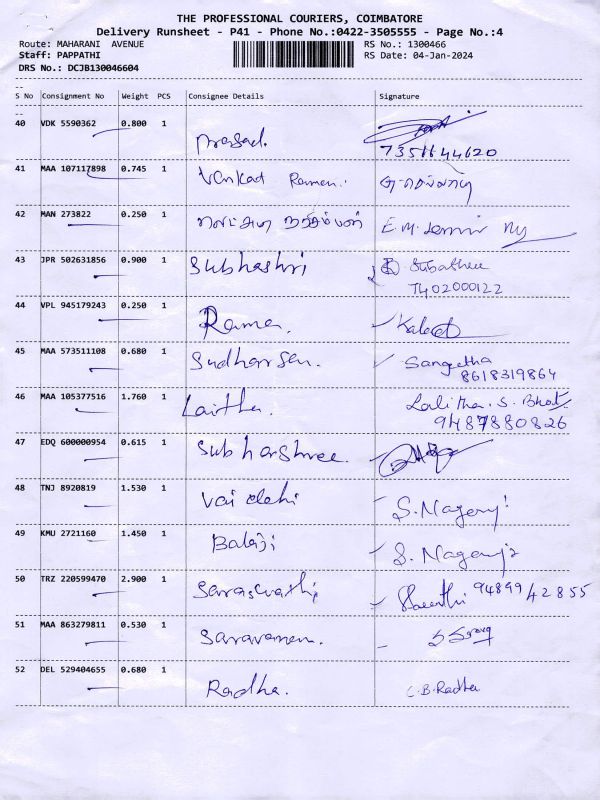 THE PROFESSIONAL COURIERS, COIMBATORE
Delivery Runsheet - P41 - Phone No.:0422-3505555 - Page No.:4
Route: MAHARANI AVENUE RS No.: 1300466
Staff: PAPPATHI RS Date: 04-Jan-2024
DRS No.: DCJB130046604
--
S No Consignment No Weight PCS Consignee Details Signature
--
40 VDK 5590362 0.800 1 Prasad.
7358144620
41 MAA 107117898 0.745 1 Venkat Raman.
42 MAN 273822 0.250 1
43 JPR 502631856 0.900 1 Subhashri Subashree
7402000122
44 VPL 945179243 0.250 1 Raman.
45 MAA 573511108 0.680 1 Sudharsan. Sangeetha
8618319864
46 MAA 105377516 1.760 1 Laitha. Lalitha. S. Bhat
9487880826
47 EDQ 600000954 0.615 1 Subharshree.
48 TNJ 8920819 1.530 1 Vaidehi S. Nagaraj
49 KMU 2721160 1.450 1 Balaji S. Nagaraj
50 TRZ 220599470 2.900 1 Saraswathi 9489942855
51 MAA 863279811 0.530 1 Saravanan.
52 DEL 529404655 0.680 1 Radha. C.B.Radha